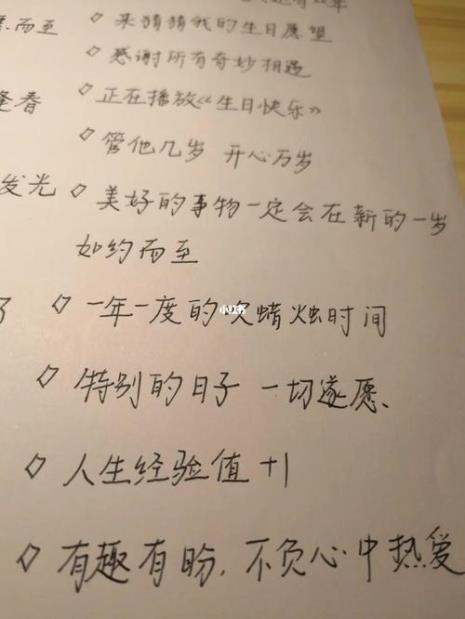 年
◇ 来猜猜我的生日愿望
而至
◇ 感谢所有奇妙相遇
逢春
◇ 正在播放《生日快乐》
◇ 管他几岁 开心万岁
发光
◇ 美好的事物一定会在新的一岁
如约而至
小红书
◇ 一年一度的吹蜡烛时间
◇ 特别的日子 一切遂愿、
◇ 人生经验值 +1
◇ 有趣有盼,不负心中热爱